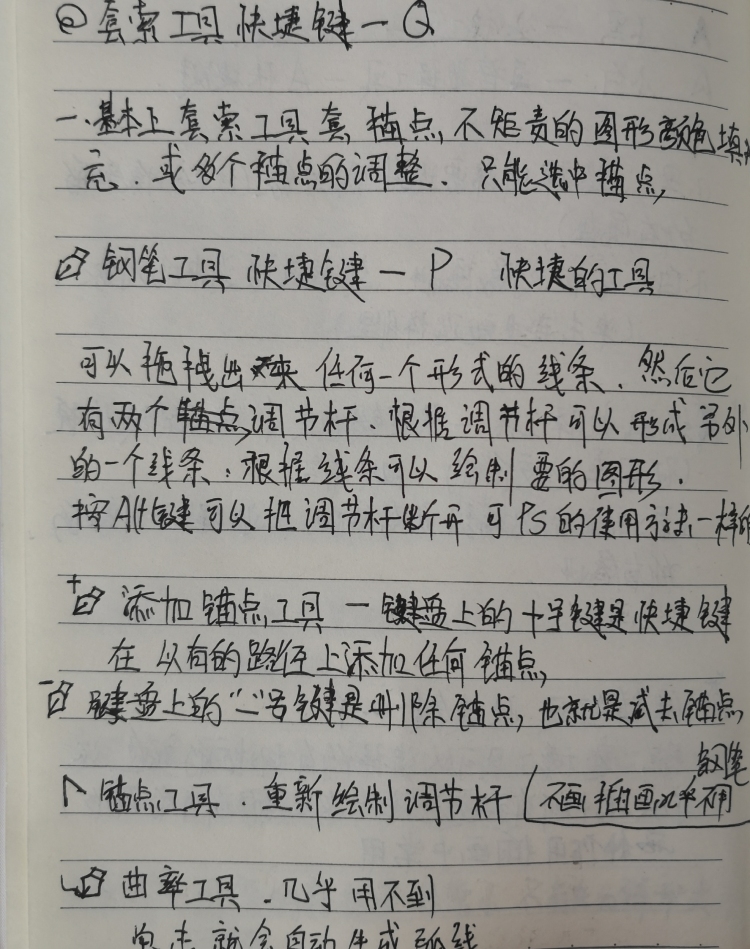 套索工具 快捷键一Q
一.基本上套索工具套锚点,不矩责的图形颜色填
充.或多个锚点的调整.只能选中锚点,
钢笔工具 快捷键一P 快捷的工具
可以拖拽出来 任何一个形式的线条.然后它
有两个锚点,调节杆.根据调节杆可以形成另外
的一个线条.根据线条可以绘制要的图形.
按Alt键可以把调节杆断开 可PS的使用方法一样的
+ 添加锚点工具 一键盘上的十字键是快捷键
在以有的路径上添加任何锚点,
键盘上的“一”号键是删除锚点,也就是减去锚点,
钢笔
锚点工具.重新绘制调节杆(不画插画几乎不用
曲率工具.几乎用不到
就会自动生成弧线